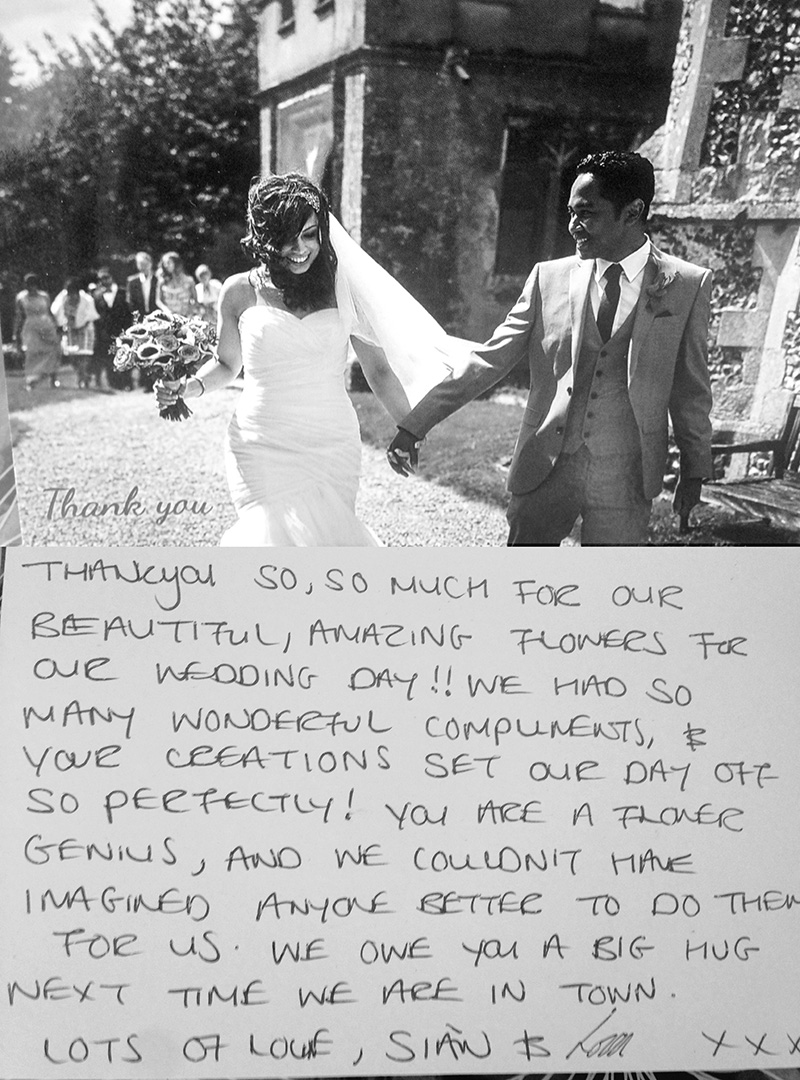 Thank you
THANKyou SO, SO MUCH FOR OUR
BEAUTIFUL, AMAZING FLOWERS FOR
OUR WEDDING DAY!! WE HAD SO
MANY WONDERFUL COMPLIMENTS, &
YOUR CREATIONS SET OUR DAY OFF
SO PERFECTLY! YOU ARE A FLOWER
GENIUS, AND WE COULDN'T HAVE
IMAGINED ANYONE BETTER TO DO THEM
FOR US. WE OWE YOU A BIG HUG
NEXT TIME WE ARE IN TOWN.
LOTS OF LOVE, SIÂN & XXX